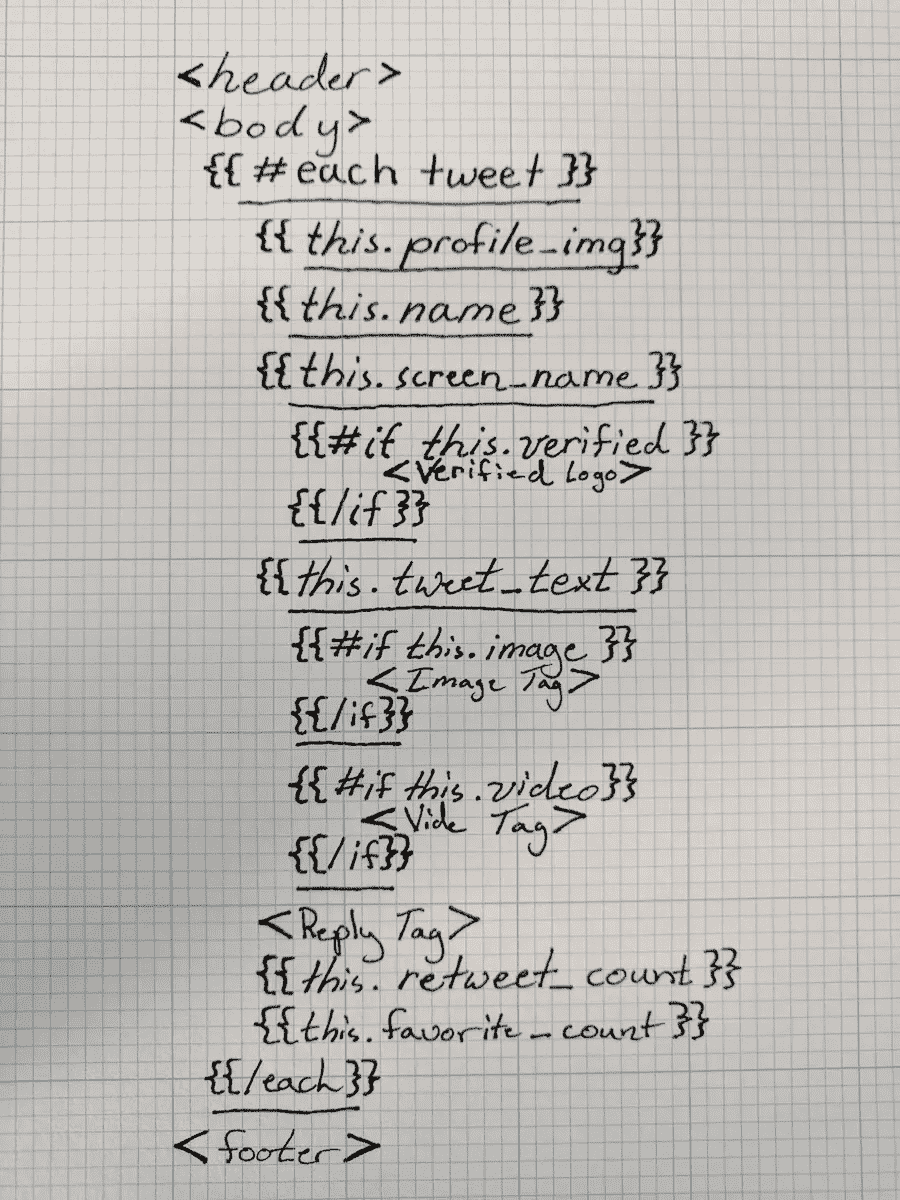 <header>
<body>
{{ #each tweet }}
{{ this.profile_img}}
{{ this.name }}
{{ this.screen_name }}
{{#if this.verified }}
<Verified Logo>
{{/if }}
{{ this.tweet_text }}
{{#if this.image }}
<Image Tag>
{{/if}}
{{ #if this.video}}
<Vide Tag>
{{/if}}
<Reply Tag>
{{this.retweet_count }}
{{this.favorite_count }}
{{/each}}
<footer>